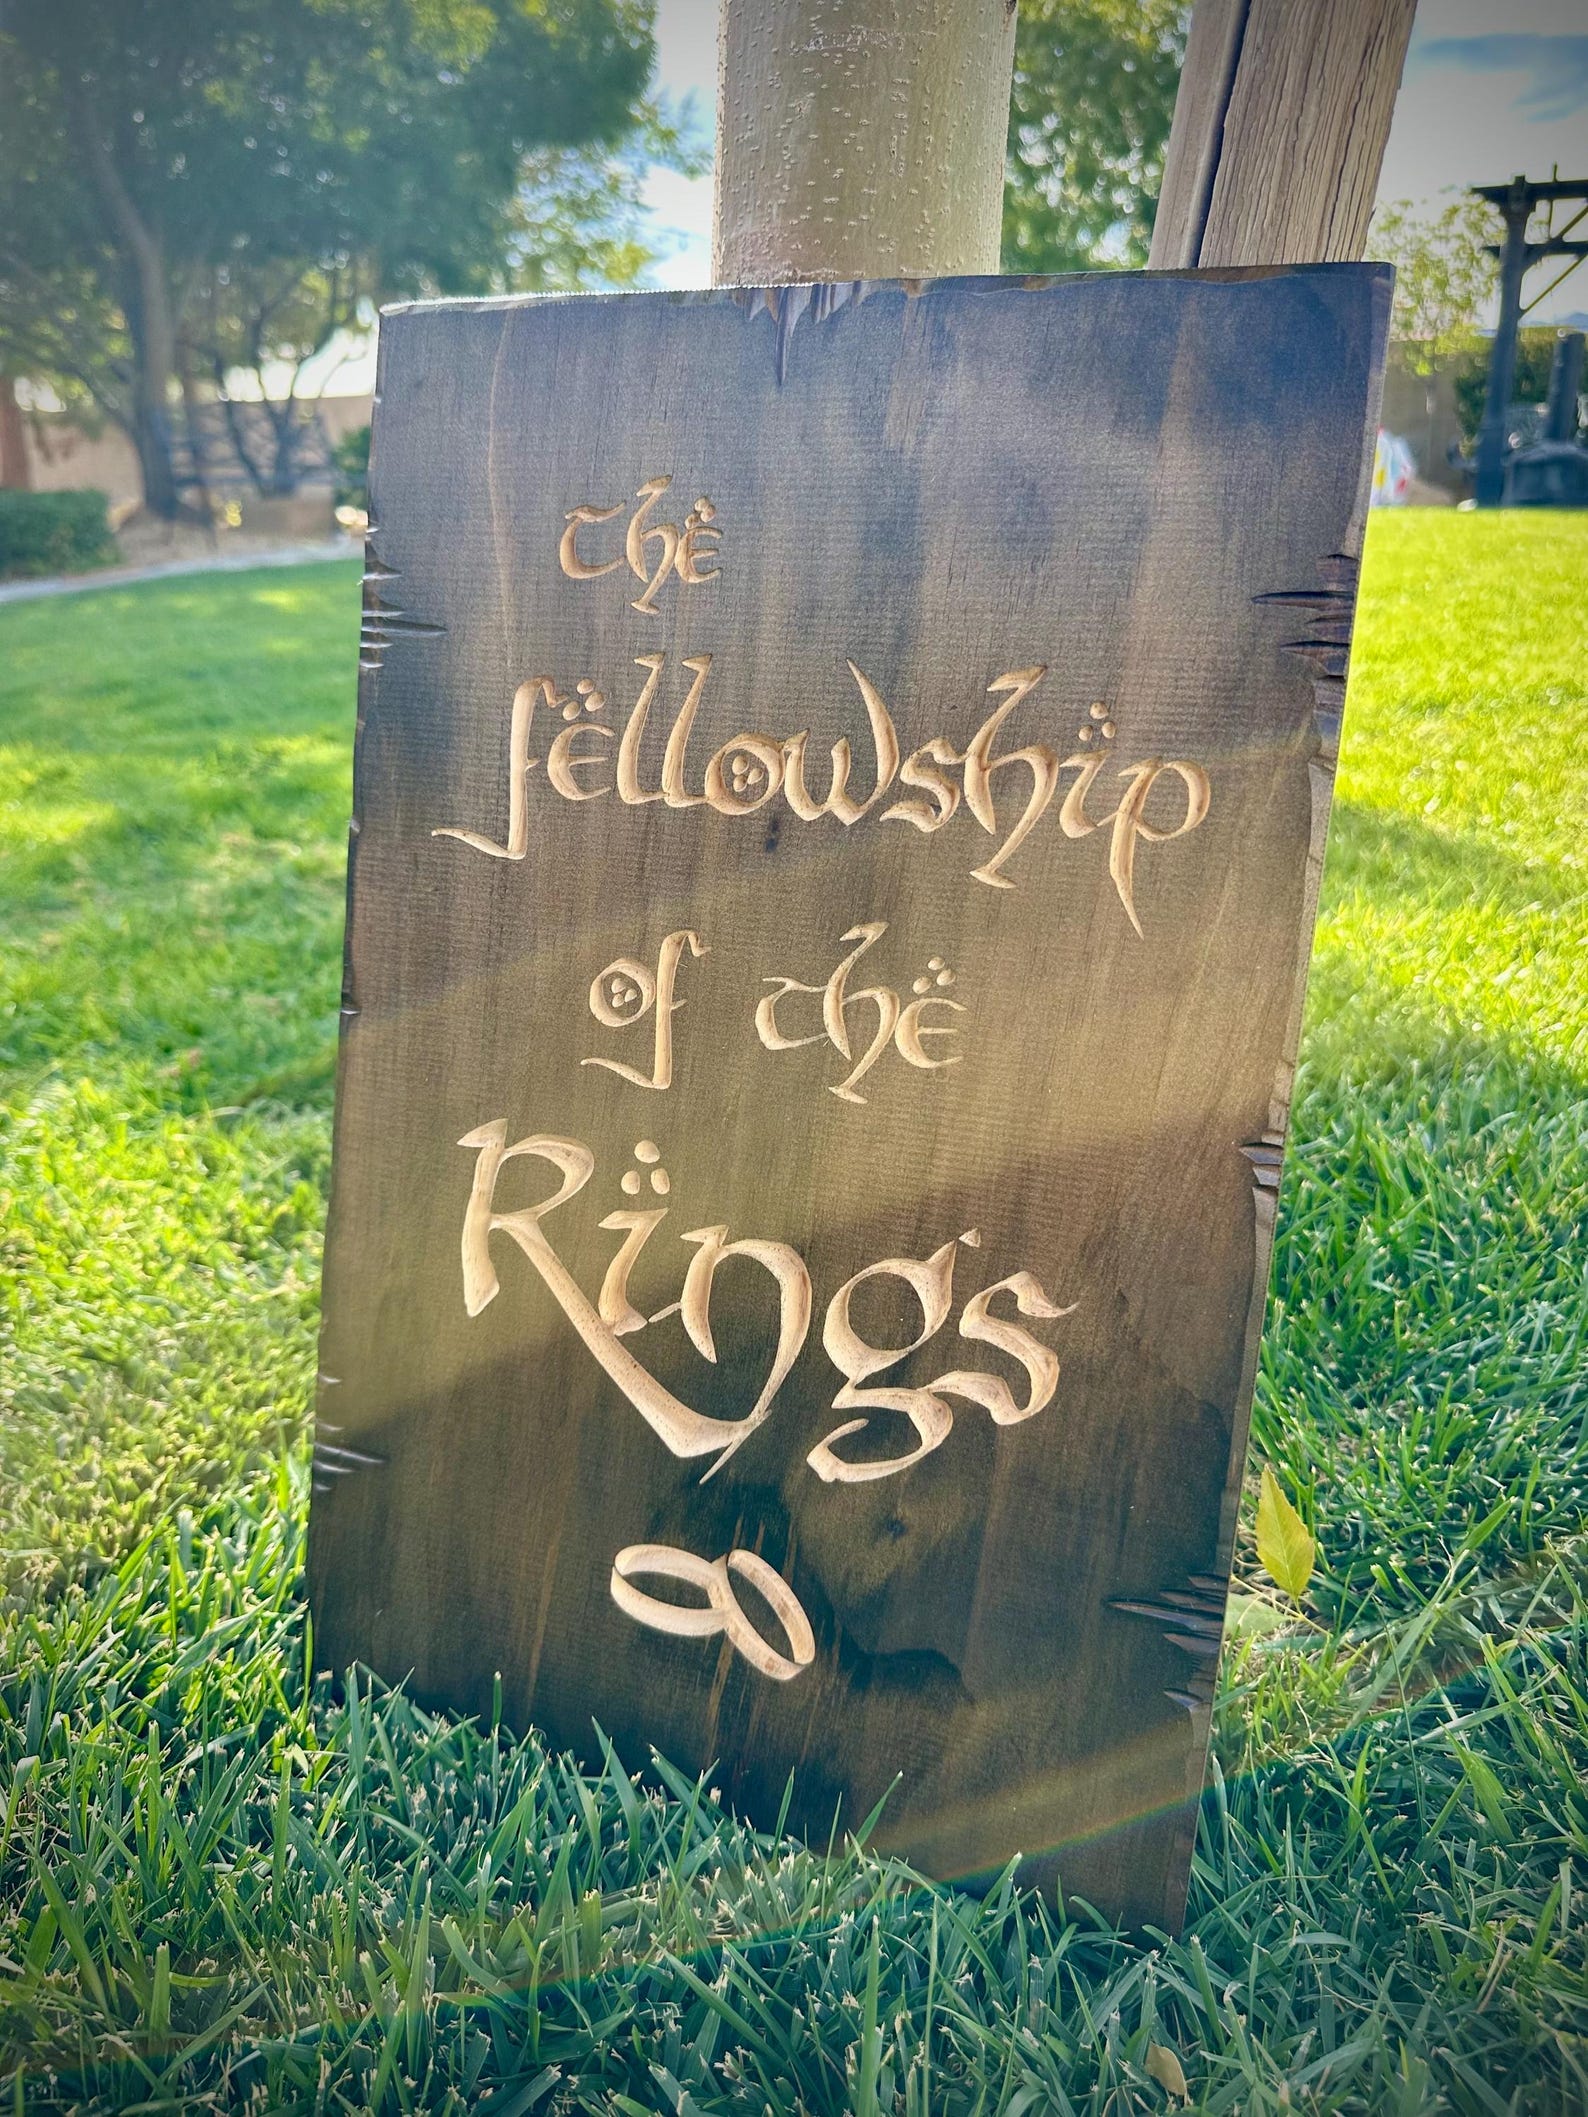 the
fellowship
of the
Rings